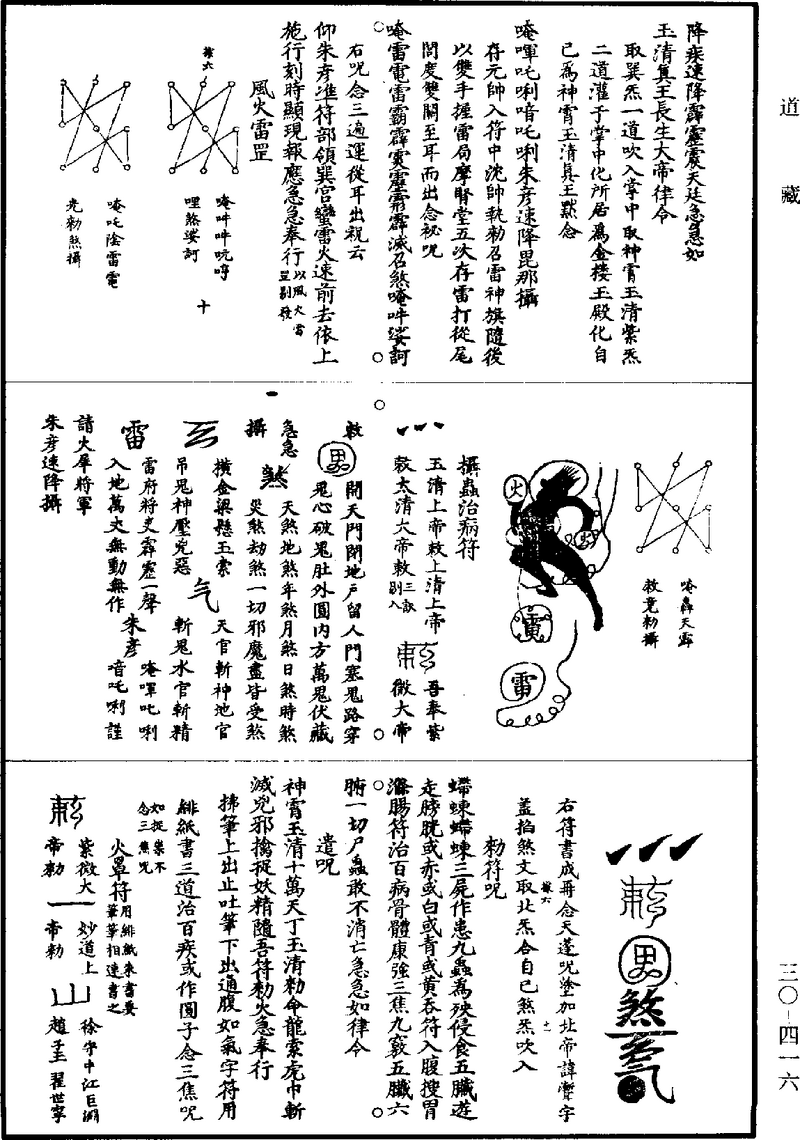 道藏
降疾速降霹靂震天廷急急如
玉清真王長生大帝律令
取巽炁一道吹入掌中取神霄玉清紫炁
二道灌子掌中化所居為金樓玉殿化自
已為神霄玉清真王默念
唵㖶吒唎喑吒唎朱彥速降毘那攝
存元帥入符中沈帥執勑召雷神旗隨後
以雙手握雷局摩腎堂五次存雷打從尾
閭度雙關至耳而出念祕咒
唵雷電雷霸霹靂霹滅召煞唵吽娑訶
右咒念三遍運從耳出祝云
仰朱彥準符部領巽宮蠻雷火速前去依上
施行刻時顯現報應急急奉行以風火雷罡剔發
風火雷罡
唵吽吽吭哼
哩煞娑訶
十
唵吒陰雷電
充勑煞攝
唵轟天霹
敕竟勑攝
火
雷
雷
攝蟲治病符
玉清上帝敕上清上帝
敕太清大帝敕三訣剔入
吾奉紫
微大帝
敕
開天門閉地戶留人門塞鬼路穿
鬼心破鬼肚外圓內方萬鬼伏藏
急急
煞
天煞地煞年煞月煞日煞時煞
災煞劫煞一切邪魔盡皆受煞
攝
橫金梁懸玉索
吊鬼神壓兇惡
气
天官斬神地官
斬鬼水官斬精
雷
雷府將吏霹靂一聲
入地萬丈無動無作
朱彥
唵㖶吒唎
喑吒唎謹
請火犀將軍
朱彥速降攝
煞
右符書成再念天蓬咒塗加北帝諱𩆜字
蓋掐煞文取北炁合自已煞炁吹入
勑符咒
蠕蝀蠕蝀三屍作患九蟲為殃侵食五臟遊
走膀胱或赤或白或青或黃吞符入腹搜胃
滌腸符治百病骨體康強三焦九竅五臟六
腑一切尸蟲敢不消亡急急如律令
遣咒
神霄玉清十萬天丁玉清勑命龍索虎巾斬
滅兇邪擒捉妖精隨吾符勑火急奉行
拂筆上出止吐筆下出通腹如氣字符用
緋紙書三道治百疾或作圓子念三焦咒
如捉祟不念三焦咒
火罩符用緋紙朱書要筆筆相連書之
紫微大
帝勑
一
妙道上
帝勑
山
徐守中江巨淵
趙子玉翟世寧
三〇-四一六